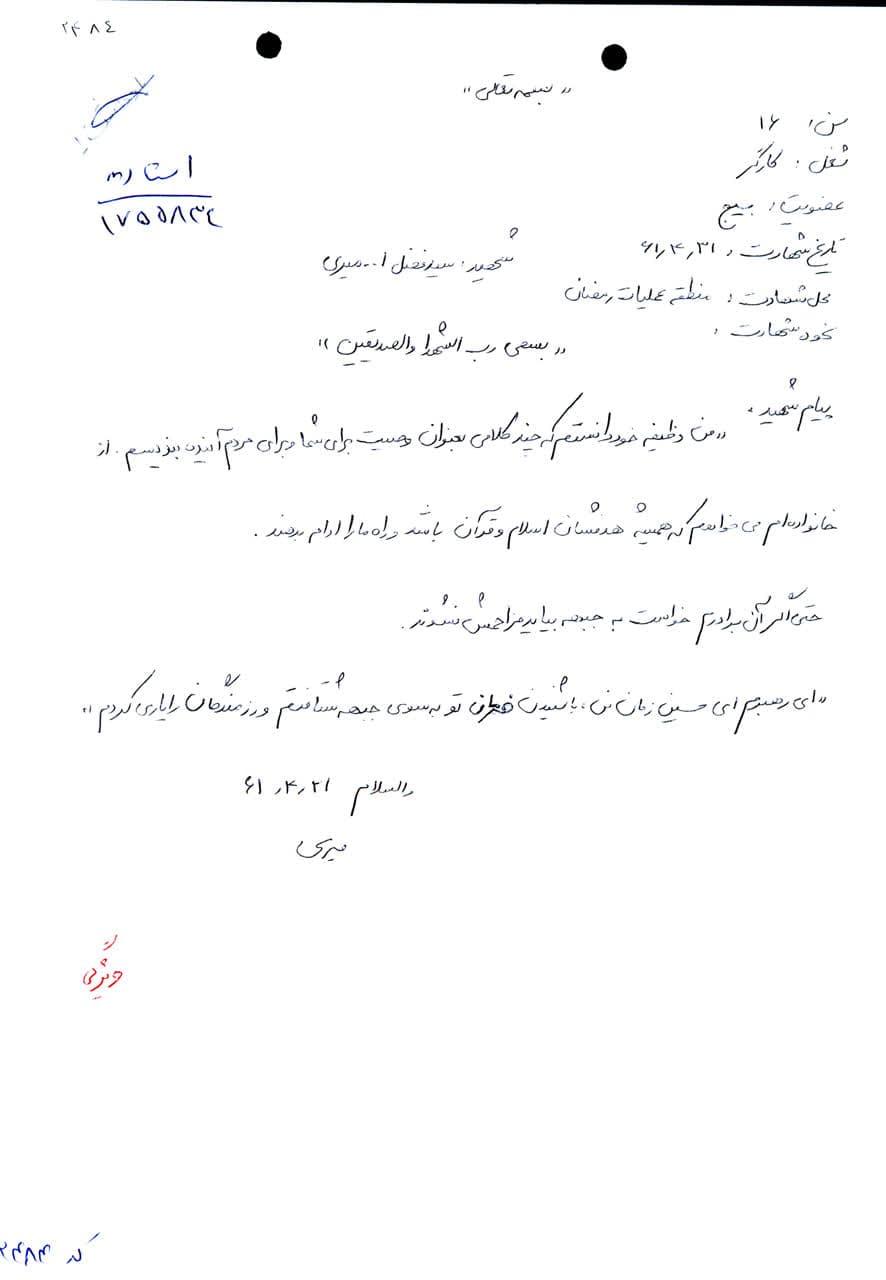 ۲۴۸۴
« بسمه تعالی »
سن: ۱۶
شغل: کارگر
عضویت: بسیج
تاریخ شهادت: ۶۱/۴/۳۱
شهید: سید فضل ا... میری
محل شهادت: منطقه عملیات رمضان
نحوه شهادت:
۱۷۵۵۸۳۴
« بسمی رب الشهدا والصدیقین »
پیام شهید:
« من وظیفه خود دانستم که چند کلامی بعنوان وصیت برای شما و برای مردم آینده بنویسم. از
خانواده‌ام می خواهم که همیشه هدفشان اسلام و قرآن باشد و راه ما را ادامه بدهند.
حتی اگر آن برادرم خواست به جبهه بیاید مزاحمش نشوند.
« ای رهبرم ای حسین زمان من، با شنیدن تو به سوی جبهه شتافتم و رزمندگان را یاری کردم »
والسلام ۶۱/۴/۲۱
میری
ویژگی
کد ۲۴۸۴